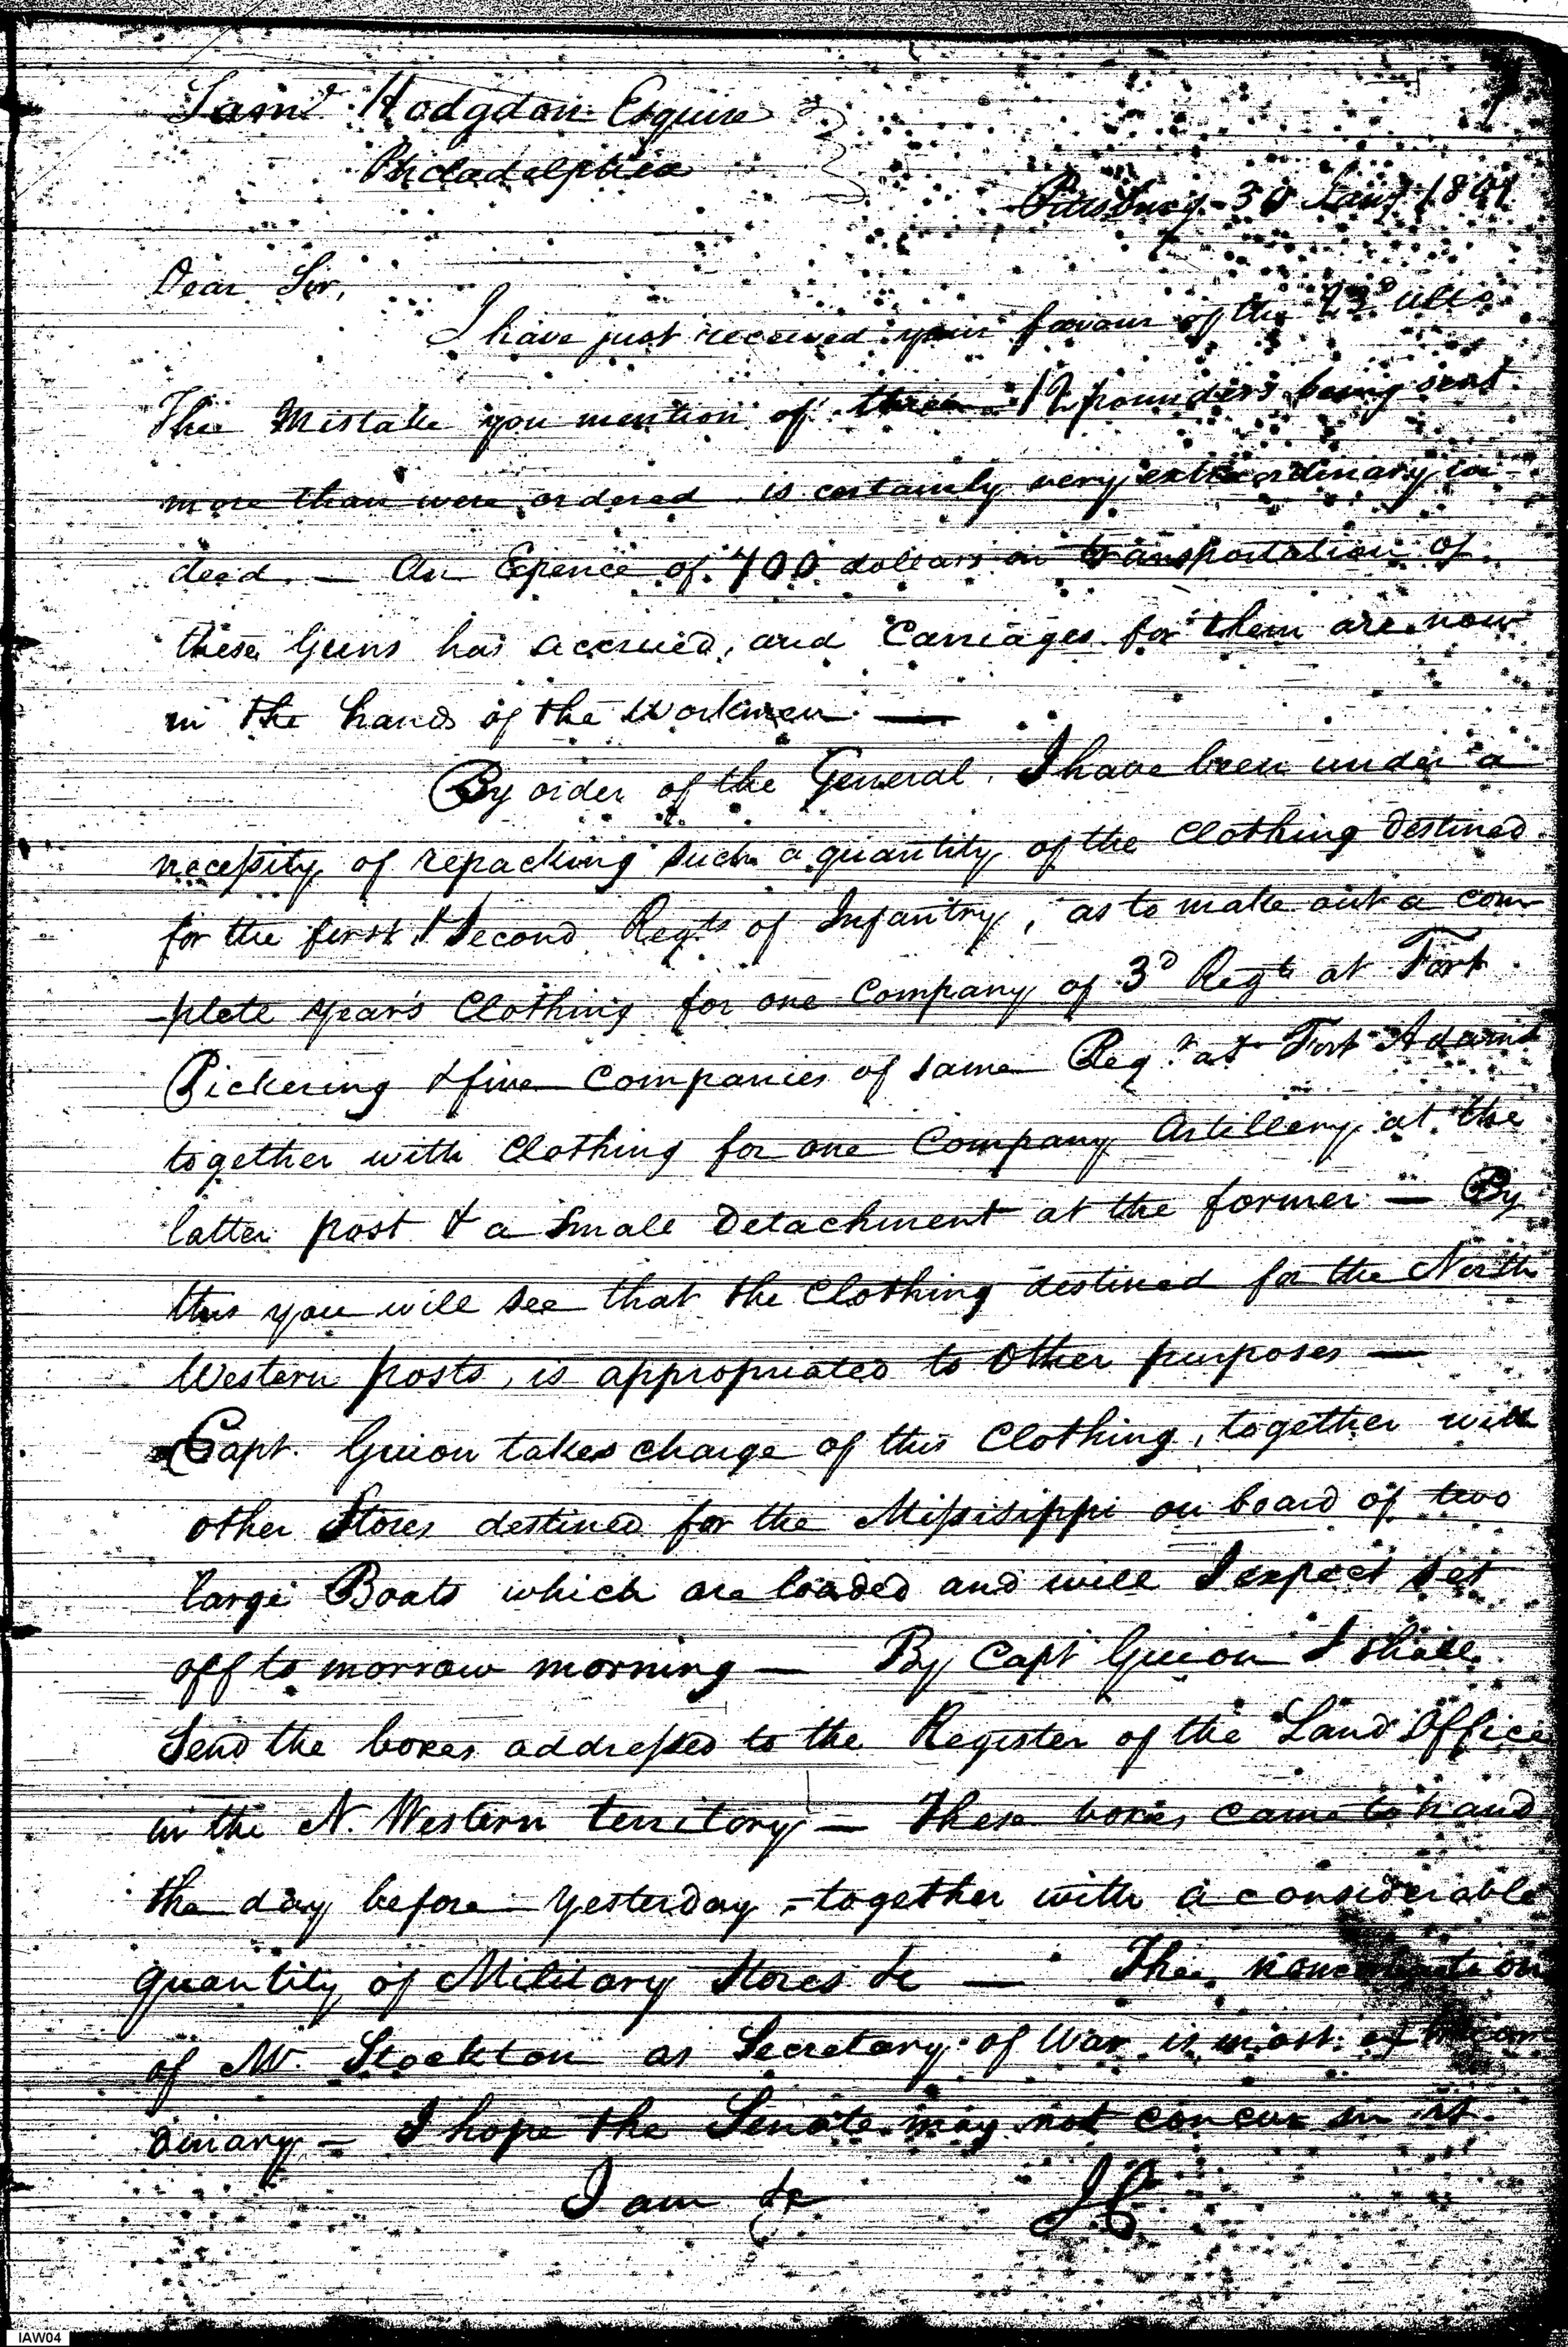 Saml. Hodgdon Esquire
Philadelphia
Pittsburg 30 Jany 1801
Dear Sir,
I have just received your favour of the 23d ulto
The Mistake you mention of three 12 pounders being sent
more than were ordered is certainly very extraordinary in-
deed. — An Epence of 700 dollars on transportation of
these Guns has accrued, and Carriages for them are now
in the hands of the Workmen —
By order of the General. I have been under a
necessity of repacking such a quantity of the Clothing destined
for the first & Second Regts of Infantry, as to make out a com
-plete year's Clothing for one Company of 3d Regt at Fort
Pickering & five Companies of same Regt at Fort Adams
together with Clothing for one Company Artillery at the
latter post & a Small Detachment at the former — By
this you will see that the Clothing destined for the North
Western posts, is appropriated to Other purposes —
Capt. Guion takes charge of this Clothing, together with
other Stores destined for the Missisippi on board of two
large Boats which are loaded and will I expect set
off to morrow morning — By Capt Guion I shall
Send the boxes addressed to the Register of the Land Office
in the N. Western territory — These boxes came to hand
the day before yesterday, together with a considerable
quantity of Military Stores &c — The nomination
of Mr. Stockton as Secretary of War is most extraor
dinary — I hope the Senate may not concur in it.
I am &c
IAW04